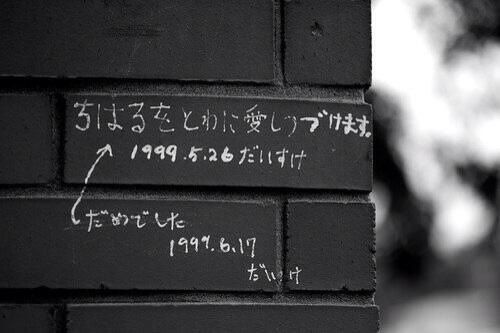 ちはるをとわに愛しつづけます。
1999.5.26 だいすけ
だめでした
1999.6.17
だいすけ